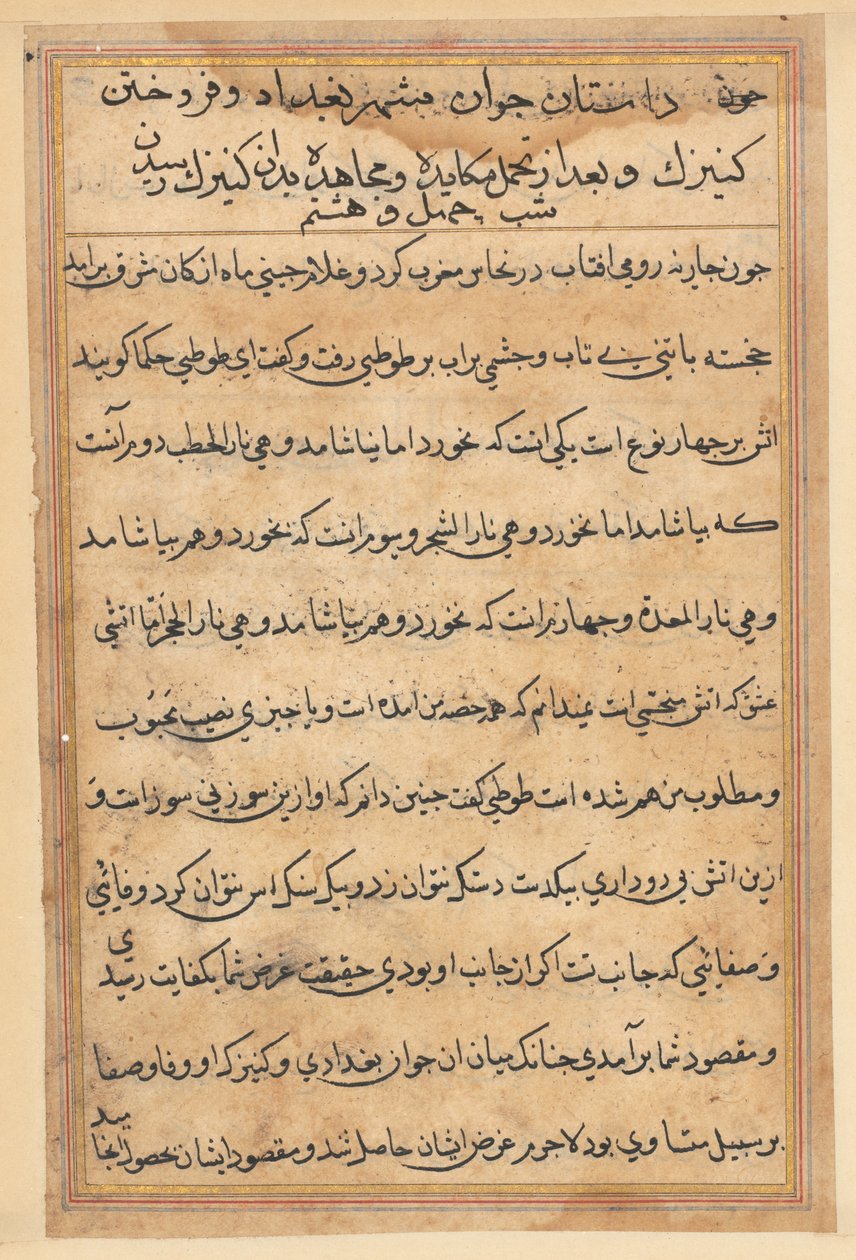 داستان جوان شهر بغداد و فروختن
کنیزک و بعد از تحمل مکایده و مجاهده بدان کنیزک رسیدن
شب چهل و هشتم
جون جاریه رومی افتاب در نخاس مغرب کرد و غلام جینی ماه از کان مشرق برامد
خجسته با تنی بی تاب و جشمی براب بر طوطی رفت و کفت ای طوطی حکما کویند
اتش بر جهار نوع است یکی انست که بخورد اما نیاشامد و هی نار الحطب دوم آنست
که بیاشامد اما نخورد و هی نار الشجر و سوم انست که بخورد و هم بیاشامد
و هی نار المعدة و جهارم انست که نخورد و هم نیاشامد و هی نار الحجر امّا اتشی
عشق که اتش منجشی است نمیدانم که همه حصه من امده است و یا جیزی نصیب محبوب
و مطلوب من هم شده است طوطی کفت جنین دانم که او ازین سوز نی سوز است و
ازین اتش بی دود اری بیکدست دستک نتوان زد و بیک سنک اس نتوان کرد وفائی
و صفائی که جانب تست اکر از جانب او بودی حقیقت غرض شما بکفایت رسیدی
و مقصود شما برآمدی جنانک میان ان جوان بغدادی و کنیزک او وفا و صفا
بر سبیل متساوی بود لاجرم غرض ایشان حاصل شد و مقصود ایشان بحصول انجامید